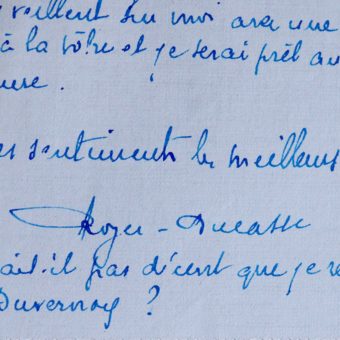 veillent sur moi avec une
à la vôtre et je serai prêt au
sentiments les meilleurs
Roger-Ducasse
ait-il pas décent que je re
Duvernoy ?